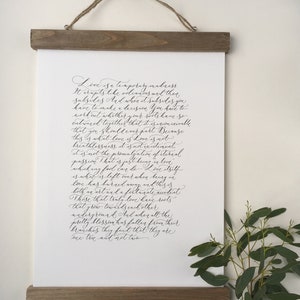 Love is a temporary madness.
It erupts like volcanoes and then
subsides. And when it subsides you
have to make a decision. You have to
work out whether your roots have so
entwined together that it is inconceivable
that you should ever part. Because
this is what love is. Love is not
breathlessness, it is not excitement,
it is not the promulgation of eternal
passion. That is just being in love
which any fool can do. Love itself
is what is left over when being in
love has burned away and this is
both an art and a fortunate accident.
Those that truly love have roots
that grow towards each other
underground. And when all the
pretty blossom has fallen from their
branches they find that they are
one tree and not two.